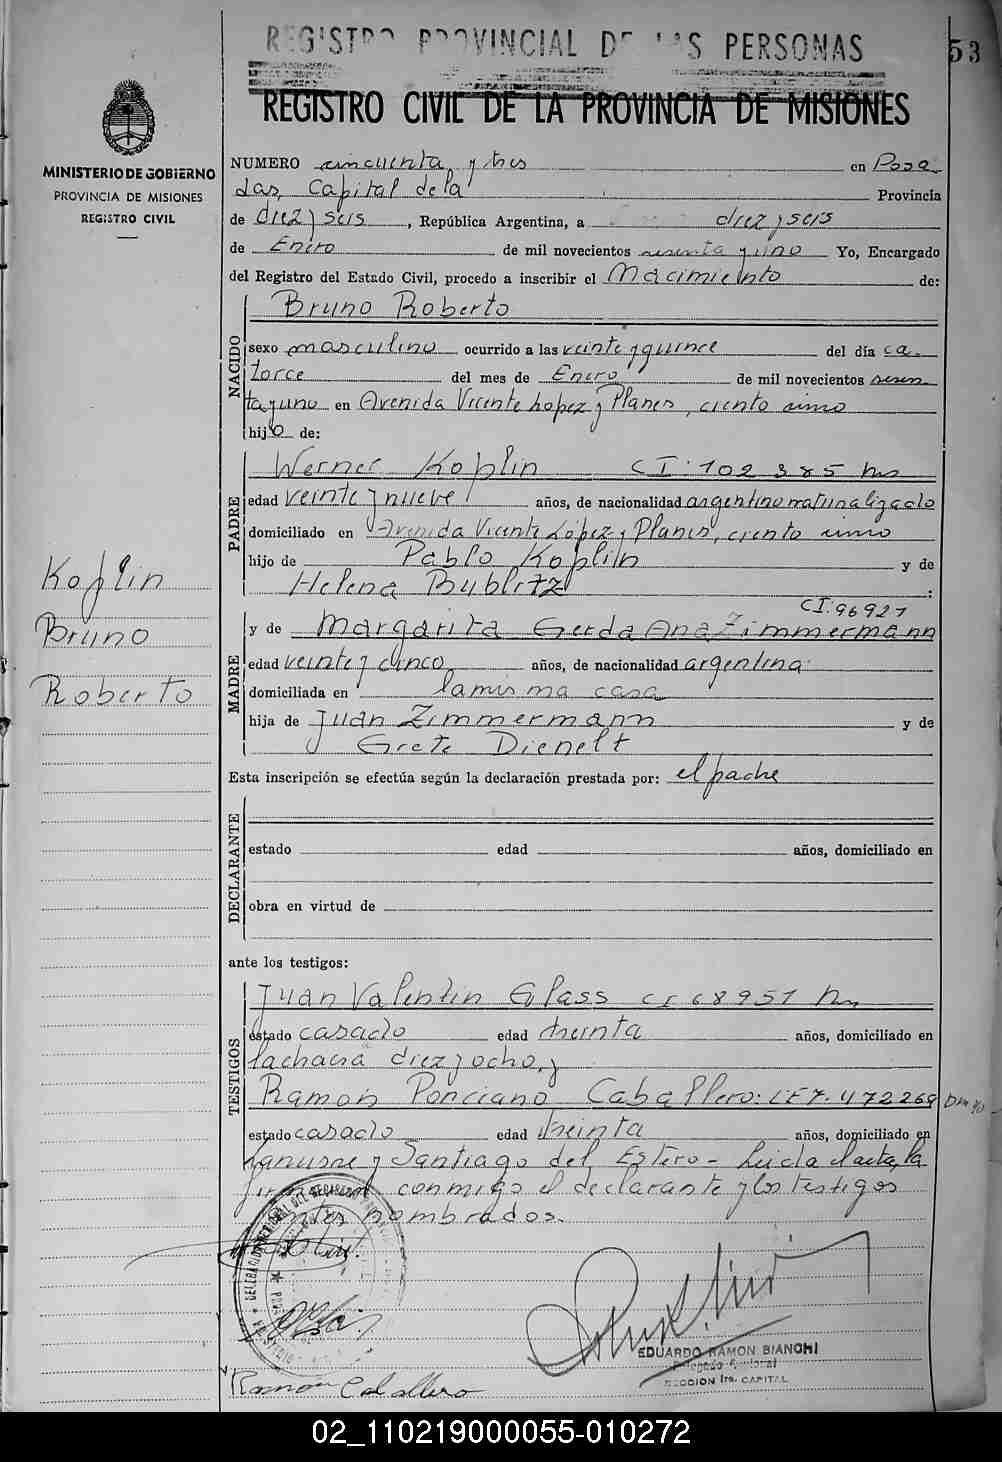 REGISTRO PROVINCIAL DE LAS PERSONAS
53
REGISTRO CIVIL DE LA PROVINCIA DE MISIONES
MINISTERIO DE GOBIERNO
PROVINCIA DE MISIONES
REGISTRO CIVIL
NUMERO cincuenta y tres en Posa
das, Capital de la Provincia
de diez y seis, República Argentina, a diez y seis
de Enero de mil novecientos sesenta y uno Yo, Encargado
del Registro del Estado Civil, procedo a inscribir el Nacimiento de:
Bruno Roberto
NACIDO
sexo masculino ocurrido a las veinte y quince del día ca
torce del mes de Enero de mil novecientos sesen
ta y uno en Avenida Vicente Lopez y Planes, ciento uno
hijo de:
PADRE
Werner Koplin CI: 102385 Ms
edad veinte y nueve años, de nacionalidad argentino naturalizado
domiciliado en Avenida Vicente López y Planes, ciento uno
hijo de Pablo Koplin y de
Helena Bublitz
Koplin
Bruno
Roberto
CI: 96921
MADRE
y de Margarita Gerda Ana Zimmermann
edad veinte y cinco años, de nacionalidad argentina
domiciliada en la misma casa
hija de Juan Zimmermann y de
Grete Dienelt
Esta inscripción se efectúa según la declaración prestada por: el padre
DECLARANTE
estado edad años, domiciliado en
obra en virtud de
ante los testigos:
TESTIGOS
Juan Valentin Glass CI 68951 Ms
estado casado edad treinta años, domiciliado en
la chacra diez y ocho, y
Ramón Ponciano Caballero: LE 7.472268
estado casado edad treinta años, domiciliado en
Lanusse y Santiago del Estero - Leida el acta, la
conmigo el declarante y los testigos
nombrados.
Koplin
EDUARDO RAMON BIANCHI
Delegado Seccional
SECCION 1ra. CAPITAL
Ramón Caballero
02_110219000055-010272